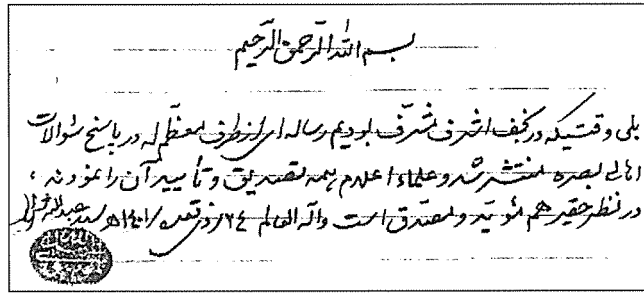 بسم الله الرحمن الرحیم
بلی وقتیکه در نجف اشرف مشرف بودیم رساله ای از طرف معظم له در پاسخ سئوالات
اهالی بصره منتشر شد و علماء اعلام همه تصدیق و تأیید آن را نمودند ،
در نظر حقیر هم مؤید و مصدق است والله العالم ٢٤ ذی قعده ١٤٠١ه سید عبدالله